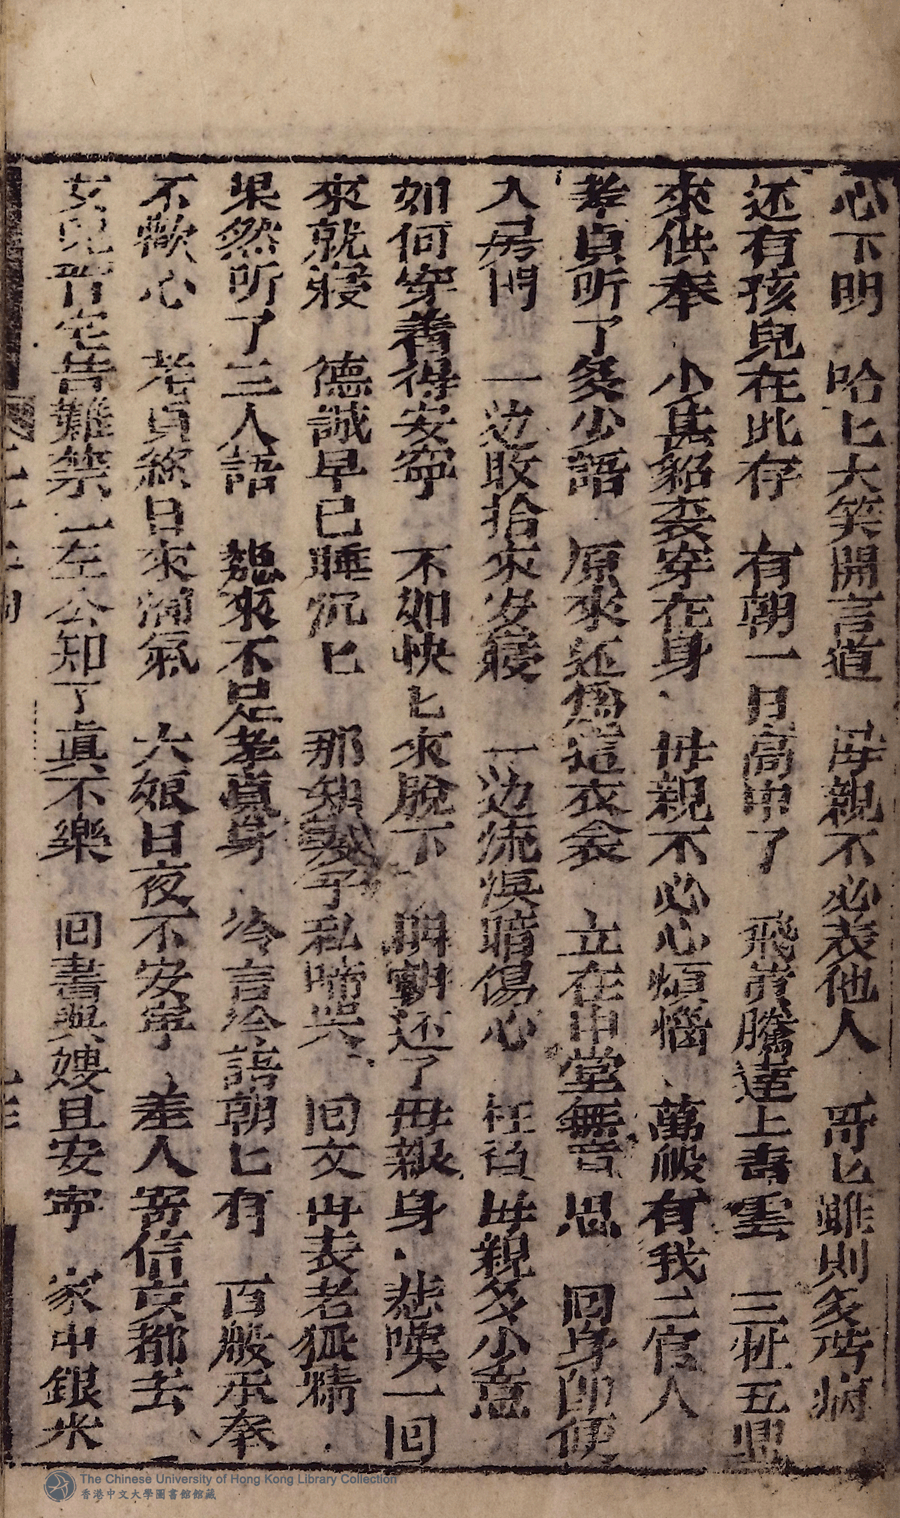 心下明　哈匕大笑開言道　母親不必表他人　哥匕雖則多疾病
还有孩兒在此存　有朝一日高中了　飛黃騰達上青雲　三牲五鼎
來供奉　小甚貂裘穿在身　母親不必心煩惱　萬般有我二官人
孝貞听了多少語　原來还爲這衣衾　立在中堂無意思　回身即便
入房門　一边收拾來安寢　一边流淚暗傷心　枉負母親多少意
如何穿着得安寧　不如快匕來脫下　明朝还了母親身　悲嘆一回
來就寢　德誠早已睡沉匕　那知　子私啼哭　回文再表老狐精
果然听了三人語　越來不足孝貞身　冷言冷語朝匕有　百般承奉
不歡心　孝貞終日來淘氣　六娘日夜不安寧　差人寄信京都去
女兒晋宅告難禁　左公知了真不樂　回書與嫂且安寧　家中銀米
The Chinese University of Hong Kong Library Collection
香港中文大學圖書館館藏